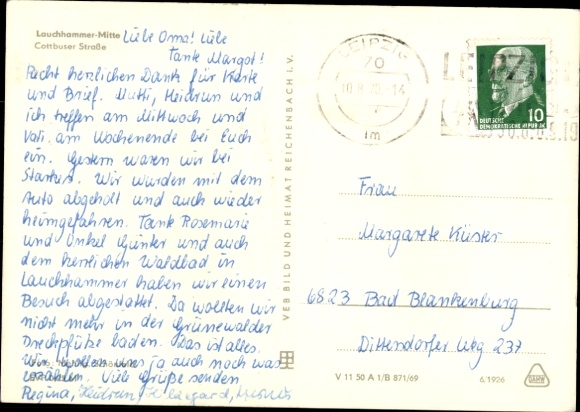 Lauchhammer-Mitte
Cottbuser Straße
Liebe Oma! Liebe
Tante Margot!
Recht herzlichen Dank für Karte
und Brief. Mutti, Heidrun und
ich treffen am Mittwoch und
Vati am Wochenende bei Euch
ein. Gestern waren wir bei
Starkes. Wir wurden mit dem
Auto abgeholt und auch wieder
heimgefahren. Tante Rosemarie
und Onkel Günter und auch
dem herrlichen Waldbad in
Lauchhammer haben wir einen
Besuch abgestattet. Da wollten wir
nicht mehr in der Grünewalder
Dreckpfütze baden. Das ist alles.
Wir wollen uns ja auch noch was
erzählen. Viele Grüße senden
Regina, Heidrun, Hildegard,
VEB BILD UND HEIMAT REICHENBACH i. V.
LEIPZIG
70
10.8.70.-14
im
LEIPZIG
10
DEUTSCHE
DEMOKRATISCHE REPUBLIK
Frau
Margarete Küster
6823 Bad Blankenburg
Dittersdorfer Weg 237
V 11 50 A 1/B 871/69
6.1926